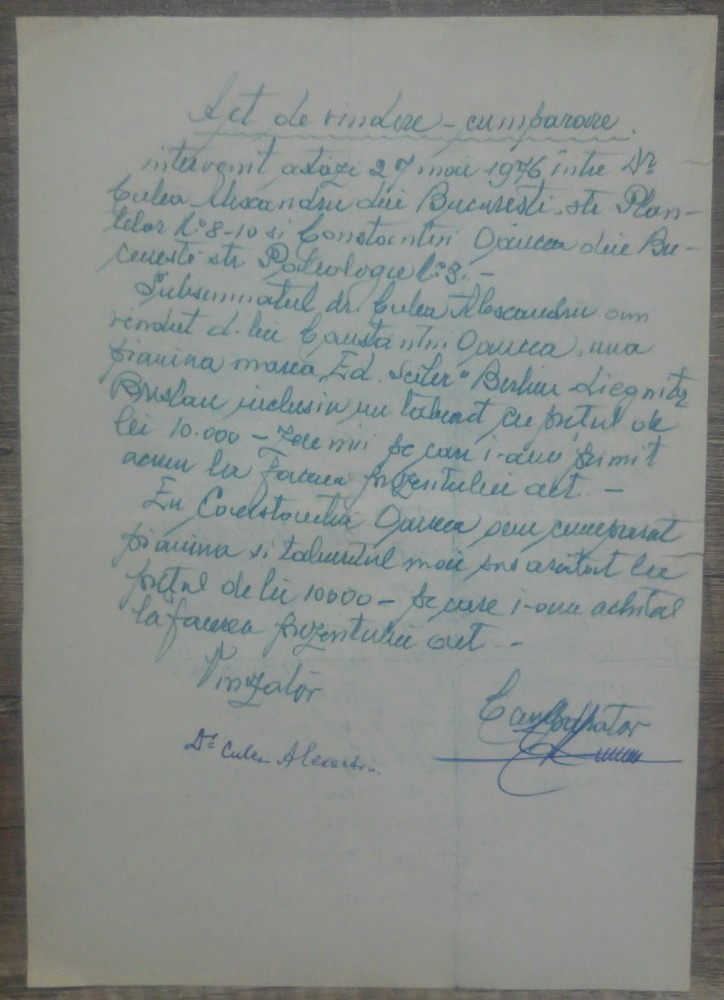 Act de vindere - cumparare.
intervenit astăzi 27 mai 1976 între Dr.
Culea Alexandru din București str. Plan-
telor No 8-10 si Constantin Opincea din Bu-
curesti str. Paleologu No 3. -
Subsemnatul dr. Culea Alexandru am
vindut d-lui Constantin Opincea, una
pianina marca „Ed. Seiler" Berlin Liegnitz
Breslau inclusiv un taburet cu prețul de
lei 10.000 - zece mii pe care i-am primit
acum la facerea prezentului act. -
Eu Constantin Opincea am cumparat
pianina si taburetul mai sus arătat cu
prețul de lei 10000 - pe care i-am achitat
la facerea prezentului act. -
Vinzător
Cumpărător
Dr Culea Alexandru